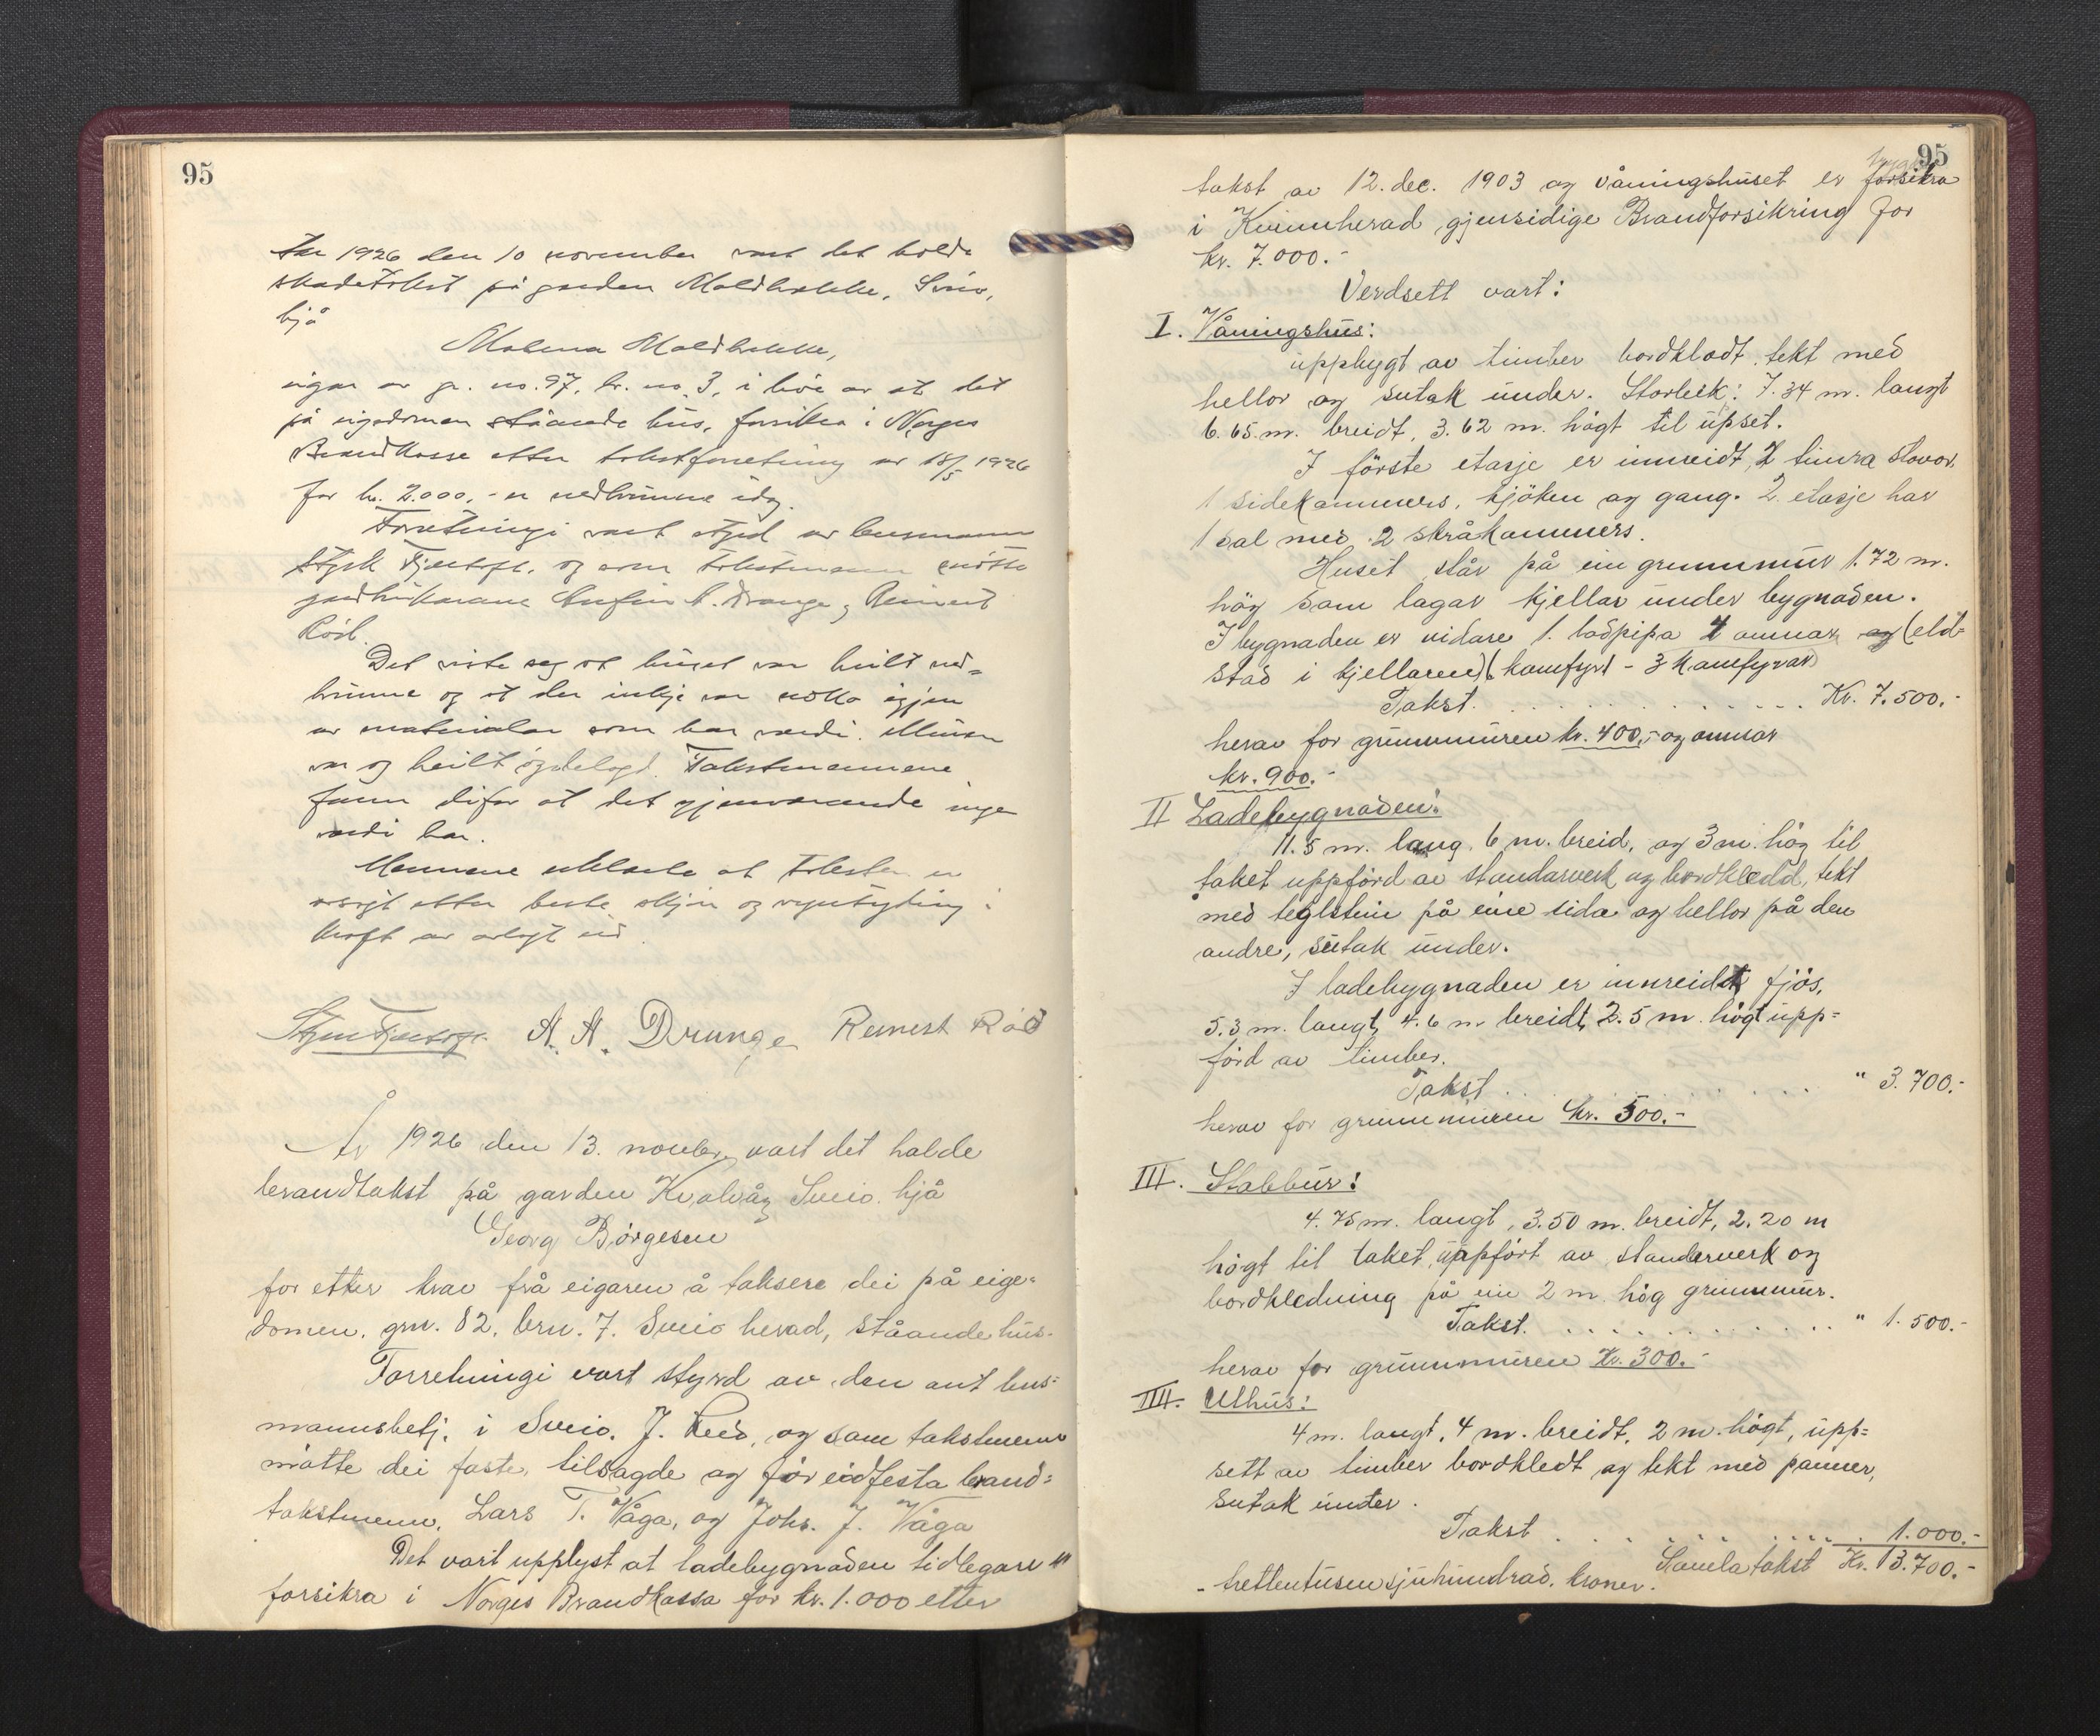 95
År 1926 den 10 november vart det halde
skadetakst på garden Moldbrekke, Sveio,
hjå
Malena Moldbrekke,
eigar av gr. no. 97, br. no. 3, i høve av at det
på eigedomen ståande hus, forsikra i Norges
Brandkasse etter takstforretning av 18/5 1926
for kr. 2.000,- er nedbrunne idag.
Forretningi vart styrd av lensmann
Fjeetoft, og som takstmenn møtte
gardbrukarane A. Drange og Reinert
Röd.
Det viste seg at huset var heilt ned=
brunne og at der inkje var noko igjen
av materialar som har verdi. Muren
var og heilt øydelagd. Takstmennene
fann difor at det gjenverande inga
verdi har.
Mennene erklærte at taksten er
avsagt etter beste skjøn og overtyding i
kraft av avlagt eid.
A. A. Drange Reinert Röd
År 1926 den 13. novbr. vart det halde
brandtakst på garden Kvalvåg Sveio. hjå
Georg Børgesen
for etter krav frå eigaren å taksere dei på eige=
domen, gnr. 82, brn. 7. Sveio herad, ståande hus.
Forretningi vart styrd av den ant lens=
mannsbetj. i Sveio. J. Lied, og som takstmenn
møtte dei faste, tilsagde og för eidfesta brand=
takstmenn, Lars T. Våga, og Johs. J. Våga
Det vart upplyst at ladebygnaden tidlegare er
forsikra i Norges Brandkassa for kr. 1.000 etter
95
takst av 12. dec. 1903 og våningshuset er forsikra
i Kvinnherad gjensidige Brandforsikring for
kr. 7.000.-
Verdsett vart:
I. Våningshus:
uppbygt av timber bordkledt, tekt med
hellor og sutak under. Storleik: 7.34 m. langt
6.65 m. breidt, 3.62 m. högt til upset.
I förste etasje er innreidt, 2 timra stovor,
1 sidekammers, kjöken og gang. 2. etasje har
1 sal med 2 skråkammers.
Huset står på ein grunnmur 1.72 m.
hög som lagar kjellar under bygnaden.
I bygnaden er vidare 1. ladpipa 4 omnar og (eld=
stad i kjellaren) (komfyr) - 3 komfyrar
Takst. . . . . . . . . . . . . Kr. 7.500.-
herav for grunnmuren kr. 400,- og omnar
kr. 900.-
II Ladebygnaden:
11.5 m. lang, 6 m. breid, og 3 m. hög til
taket uppförd av standarverk og bordkledd, tekt
med teglstein på eine sida og hellor på den
andre, sutak under.
I ladebygnaden er innreidt fjös,
5.3 m. langt, 4.6 m. breidt, 2.5 m. högt upp=
förd av timber.
Takst . . . . . . . . . . . . " 3.700.-
herav for grunnmuren kr. 500.-
III. Stabbur:
4.75 m. langt, 3.50 m. breidt, 2.20 m
högt til taket, uppfört av standerverk og
bordkledning på ein 2 m. hög grunnmur.
Takst. . . . . . . . . . . . . " 1.500.-
herav for grunnmuren Kr. 300.-
IIII. Uthus:
4 m. langt, 4 m. breidt, 2 m. högt, upp=
sett av timber bordkledt og tekt med panner,
sutak under.
Takst . . . . . . . . . . . . 1.000.-
Samla takst Kr. 13.700.-
- trettentusensjuhundrad. kroner.